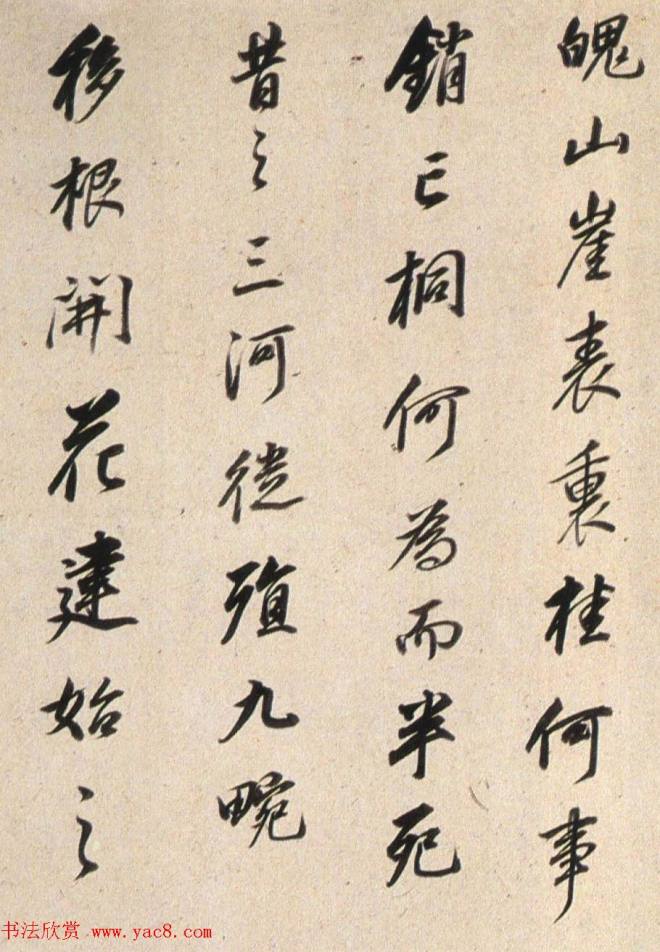 魄山崖表裏桂何事
銷亡桐何為而半死
昔之三河徙殖九畹
移根開花建始之
书法欣赏 www.yac8.com